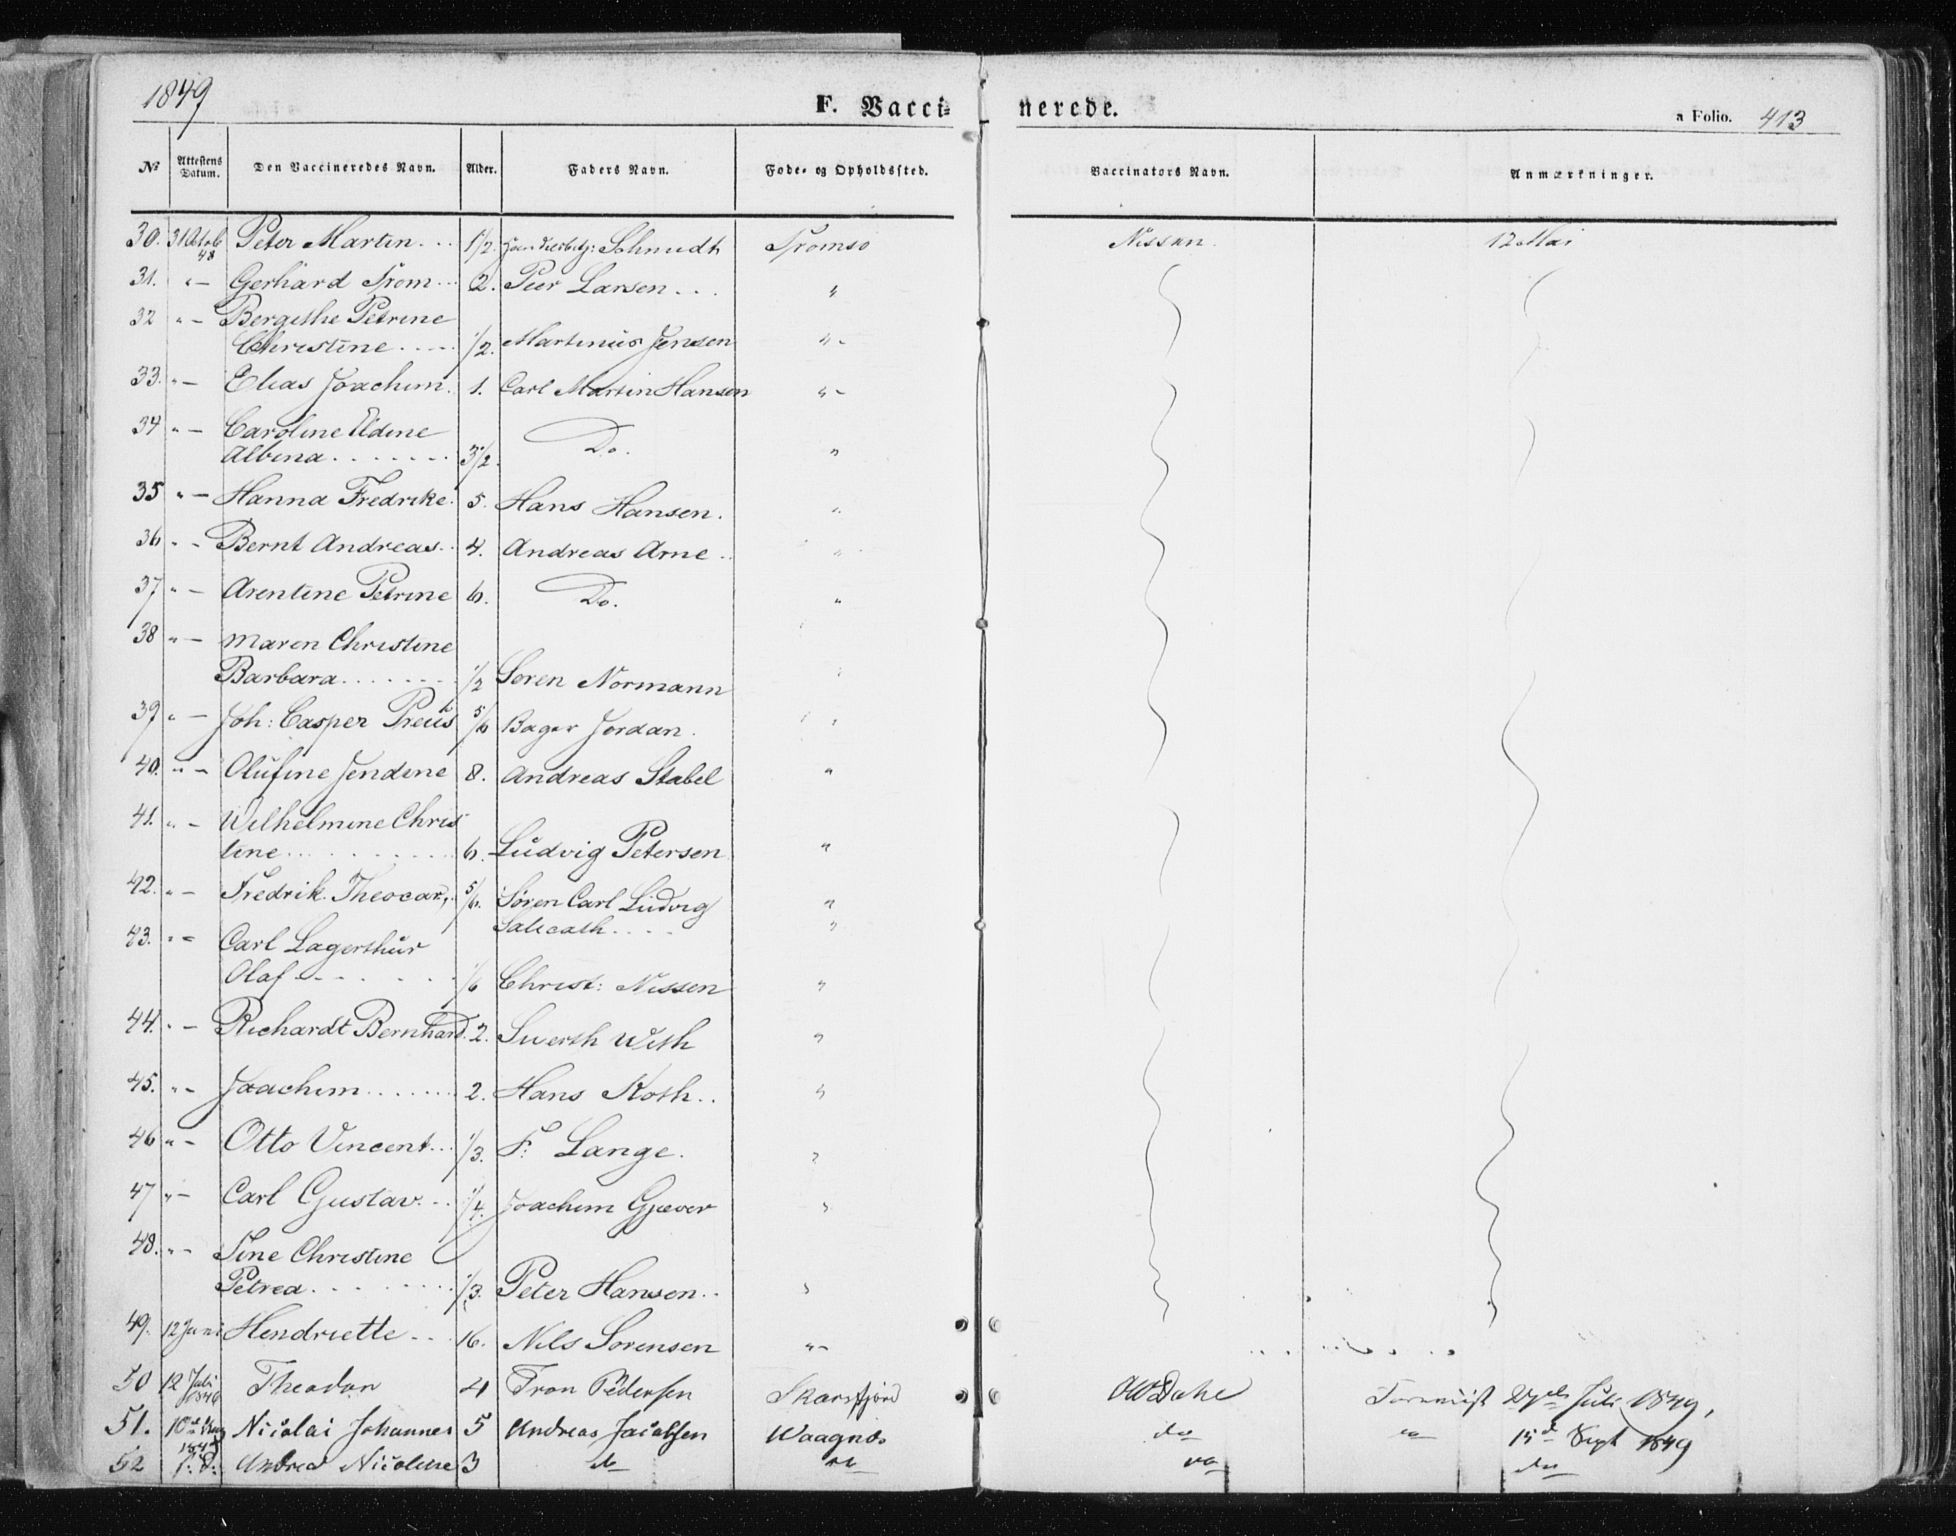 1849
F. Vacci-
nerede.
a Folio. 413
No Attestens Datum. Den Vaccineredes Navn. Alder. Faders Navn. Føde- og Opholdssted. Vaccinators Navn. Anmærkninger.
30. 31 Octob 48 Peter Martin ... 1/2. Schmidt Tromsø Nissen. 12 Mai
31. " – Gerhard Trom... 2. Peer Larsen ... "
32 " – Bergithe Petrine
Christine .... 1/2. Martinus Jensen " –
33. " – Elias Joachim. 1. Carl Martin Hansen " –
34 " – Caroline Eldine
Albina ....... 3/2. Do. "
35 " – Hanna Fredrike. 5. Hans Hansen. "
36 " – Bernt Andreas.. 4. Andreas Arne .. "
37 " – Arentine Petrine 6. Do. "
38 " – Maren Christine
Barbara ....... 1/2 Søren Normann "
39 " – Joh: Casper Preus 5/6 Bager Jordan. "
40. " – Olufine Jendine 8. Andreas Stabel "
41. " – Wilhelmine Chris
tine ........ 6. Ludvig Petersen "
42. " – Fredrik Theocar, 5/6. Søren Carl Ludvig "
Salicath .... "
43. " – Carl Lagerthur
Olaf ...... 1/6 Christ: Nissen "
44. " – Richardt Bernhard. 2. Siverth With "
45. " – Joachim ....... 2. Hans Koth .. "
46 " – Otto Vincent... 1/3. F. Lange. "
47 " – Carl Gustav. .. 1/4. Joachim Gjæver "
48. " – Sine Christine
Petrea ........ 1/3. Peter Hansen .. "
49. 12 Juni Hendriette ... 16. Nils Sørensen " –
50 12 Juli 1846 Theodor 4 Tron Pedersen Skarsfjord Ol Dahl 27de Juli 1849,
51. 10de Nicolai Johannes 5 Andreas Jacobsen Waagnæs do " 15de Sept 1849
52 Andrea Nicoline 3 do do do do